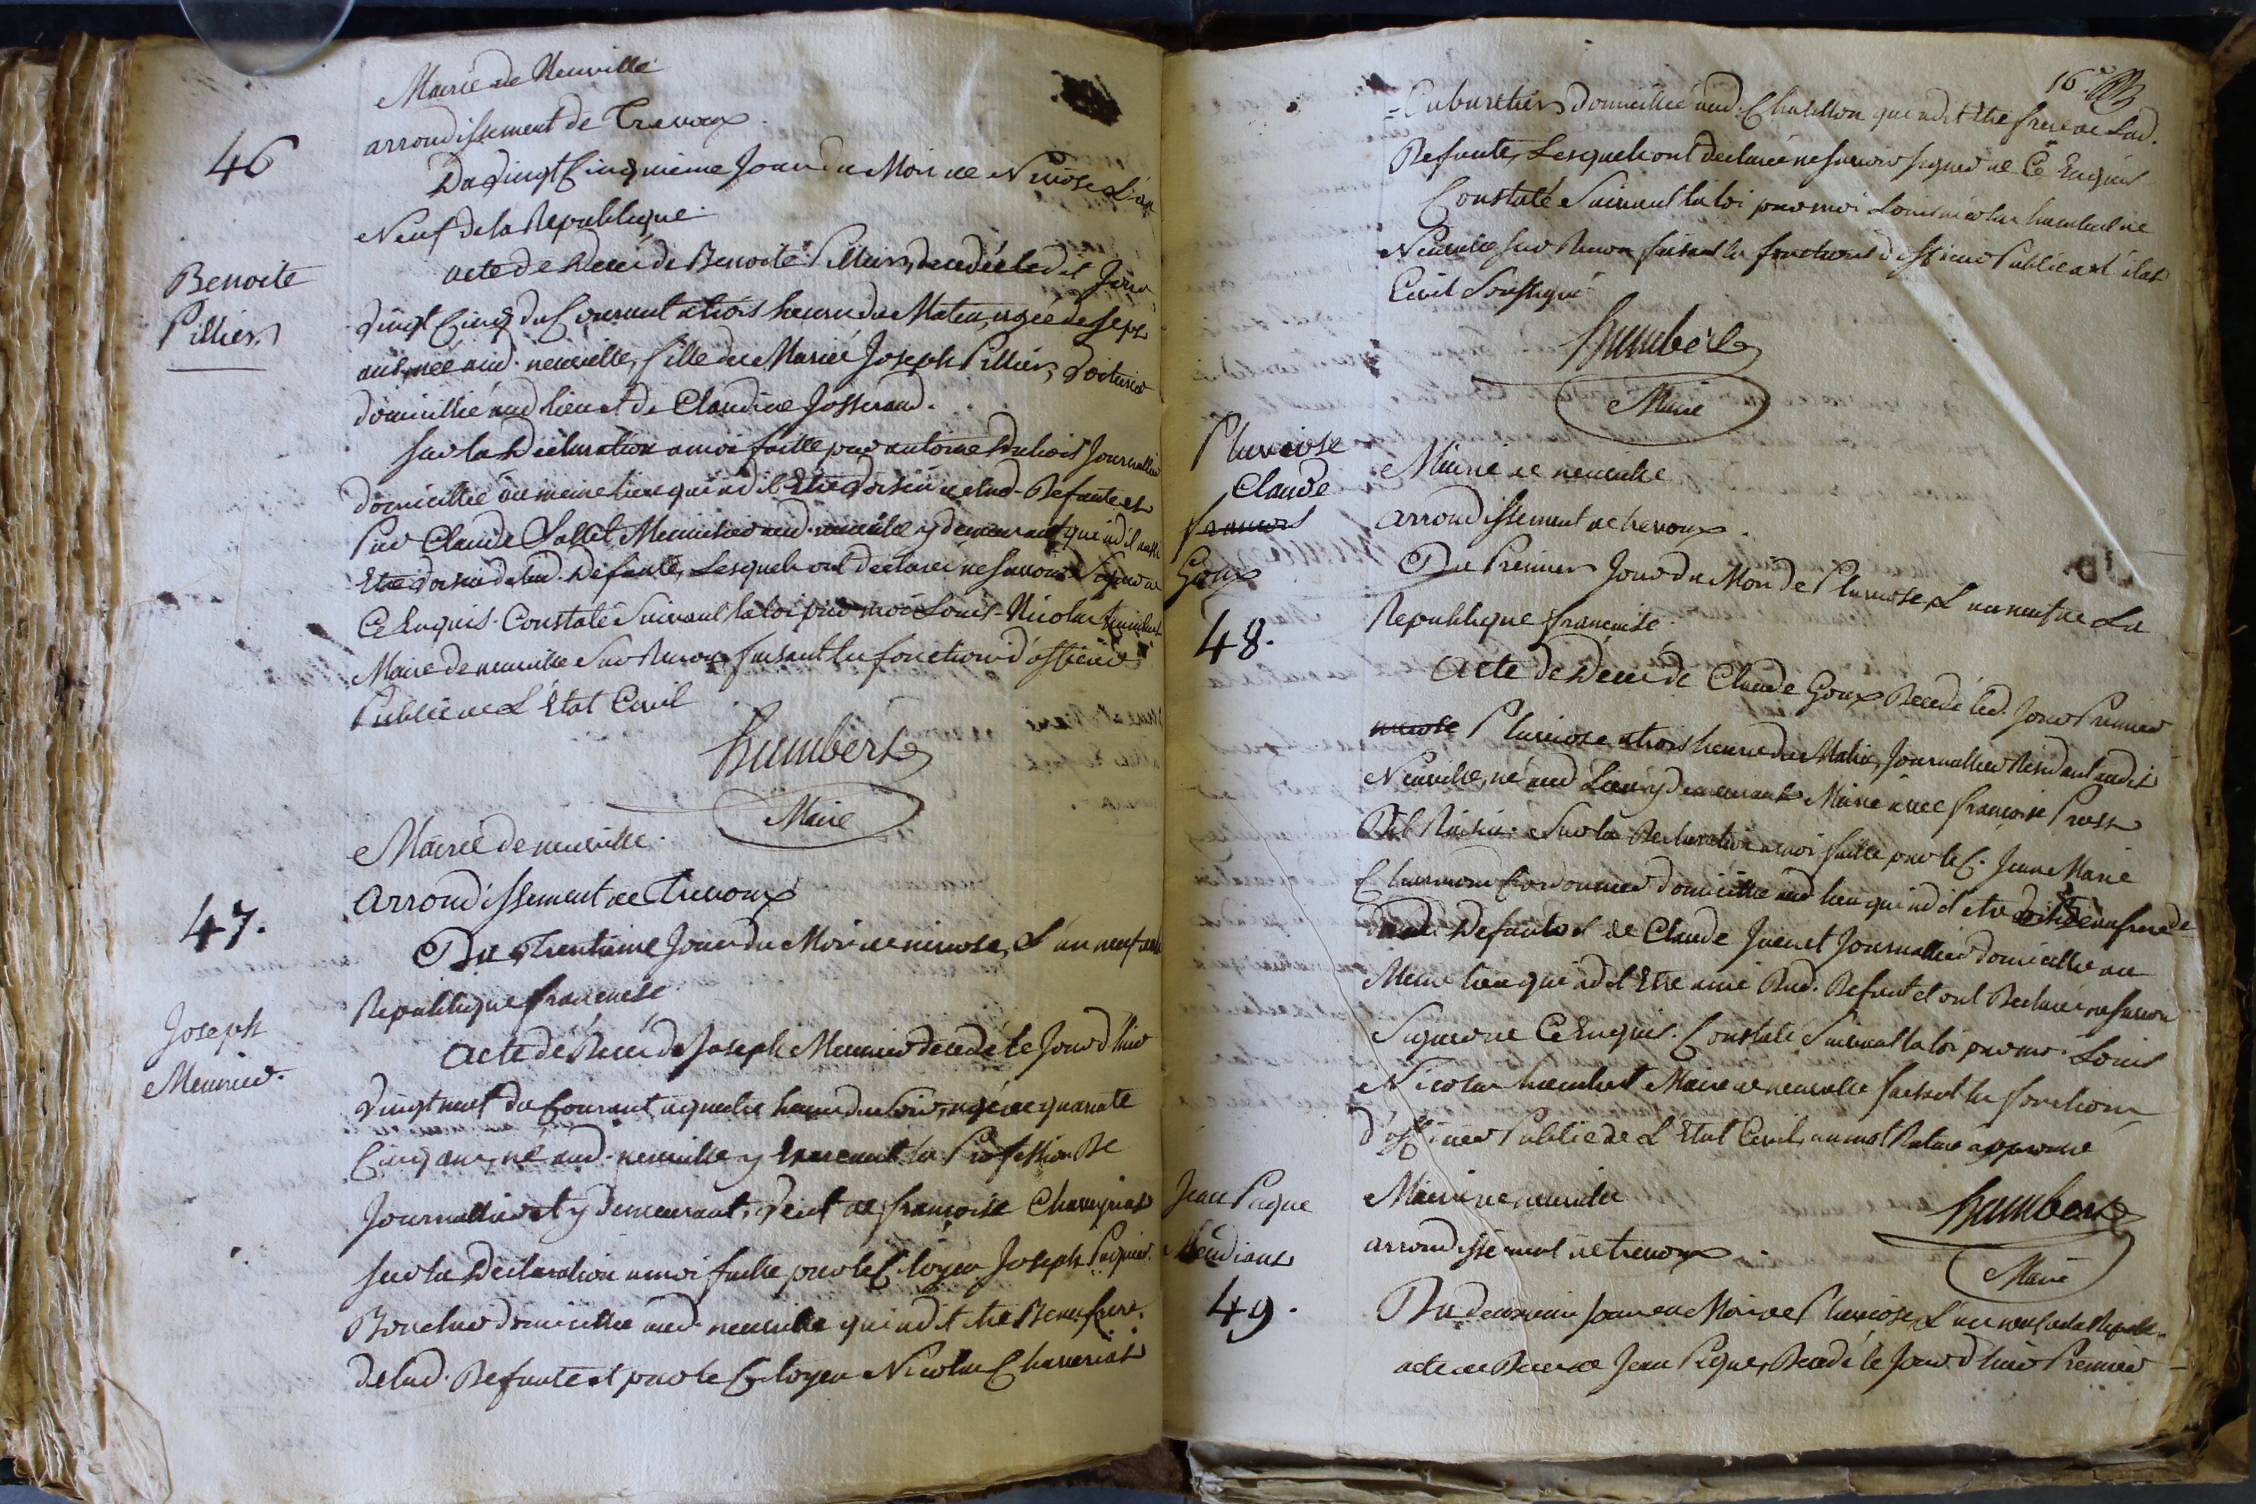 Mairie de Neuville
arrondissement de Trevoux.
46
Du vingt Cinquieme Jour du Mois de Nivose L'an
Neuf de la Republique.
Benoite
Pillier
acte de Décé de Benoite Pillier, decedée ledit Jour
vingt Cinq du Courant a trois heure du Matin, agée de sept
ans, née aud. neuville, fille de Marié Joseph Pillier, voiturier
domicillié aud lieu et de Claudine Josserand.
sur la Declaration a moi faitte par antoine Dubois Journallier
domicillié au meme lieu qui ad it Etre voisin de lad. Defunte et
Par Claude Sallet Meunier aud. neuville y demeurant qui ad it aussi
Etre voisin de lad. Defunte, Lesquels ont declaré ne savoir Signer de
Ce Enquis. Constaté Suivant la loi par moi Louis-Nicolas humbert
Maire de neuville Sur Renon faisant les fonctions d'officier
Public de L'Etat Civil
humbert
Maire
Mairie de neuville.
arrondissement de Trevoux
47.
Du Trentieme Jour du Mois de nivose, L'an neuf de la
Republique francaise
Joseph
Meunier.
acte de Décé de Joseph Meunier decedé le Jour d'hier
vingt neuf du Courant a quatre heure du soir, agé de quarante
Cinq ans, né aud. neuville y Exercant la Profession De
Journallier et y demeurant, veuf de françoise Chaneriat
sur la Declaration a moi faitte par le Citoyen Joseph Paquier
Boucher domicillié aud. neuville qui ad it etre Beaufrere.
de lad. Defunte et par le Citoyen Nicolas Chaneriat
16e
Cabaretier domicillié aud. Chatillon qui ad it etre frere de Lad.
Defunte, Lesquels ont declaré ne savoir signer de Ce Enquis
Constaté Suivant la loi par moi Louis nicolas humbert de
Neuville sur Renon faisant les fonctions d'officier Public de l'état
Civil Soussigné
humbert
Maire
Pluviose
Claude
francois
Goux
48.
Mairie de neuville
arrondissement de trevoux.
Du Premier Jour du Mois de Pluviose, L'an neuf de La
Republique francaise.
acte de Décé de Claude Goux Decedé led. Jour Premier
nivose Pluviose a trois heure du Matin, Journallier Residant audit
Neuville, né aud Lieu y demeurant Marié avec françoise Prost
Dit Raisin. Sur la Declaration a moi faitte par le C. Jean Marie
Charmon Cordonnier domicillié aud lieu qui ad it etre Beaufrere de
dud. Defunt et de Claude Juenet Journallier domicillié au
Meme lieu qui ad it Etre ami Dud. Defunt et ont Declaré ne savoir
Signer de Ce Enquis. Constaté Suivant la loi par moi Louis
Nicolas humbert Maire de neuville faisant les fonctions
d'officier Public de L'Etat Civil, un mot Rature approuvé
humbert
Maire
Jean Pique
Mendiant
49.
Mairie de neuville
arrondissement de trevoux.
Du deuxieme Jour du Mois de Pluviose, L'an neuf de la Republ.
acte de Décé de Jean Pique, Decedé le Jour d'hier Premier